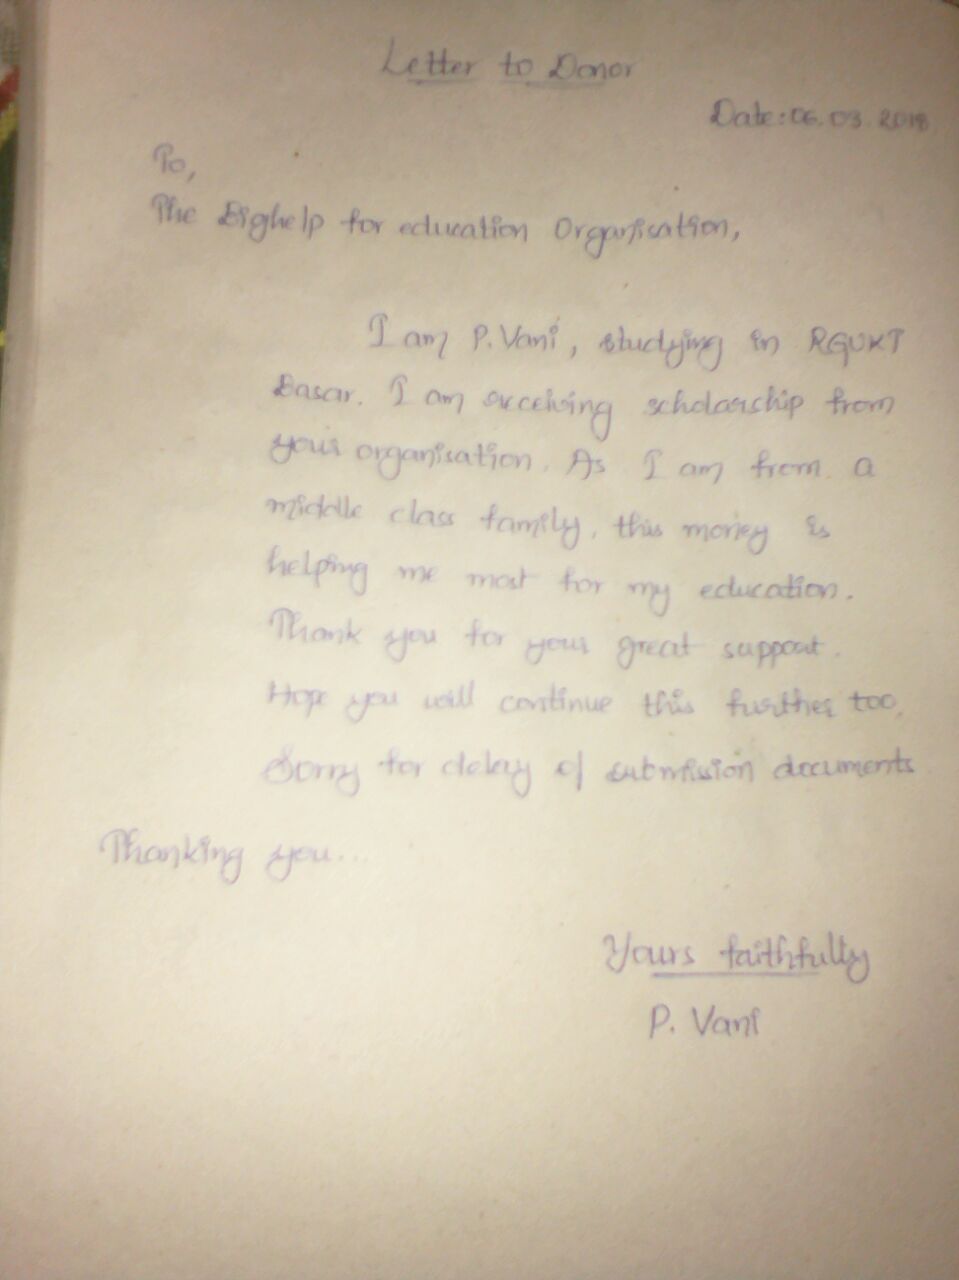 Letter to Donor
Date: 06.03.2018
To,
The Bighelp for education Organisation,
I am P. Vani, studying in RGUKT
Basar. I am receiving scholarship from
your organisation. As I am from a
middle class family, this money is
helping me most for my education.
Thank you for your great support.
Hope you will continue this further too.
Sorry for delay of submission documents
Thanking you...
Yours faithfully
P. Vani